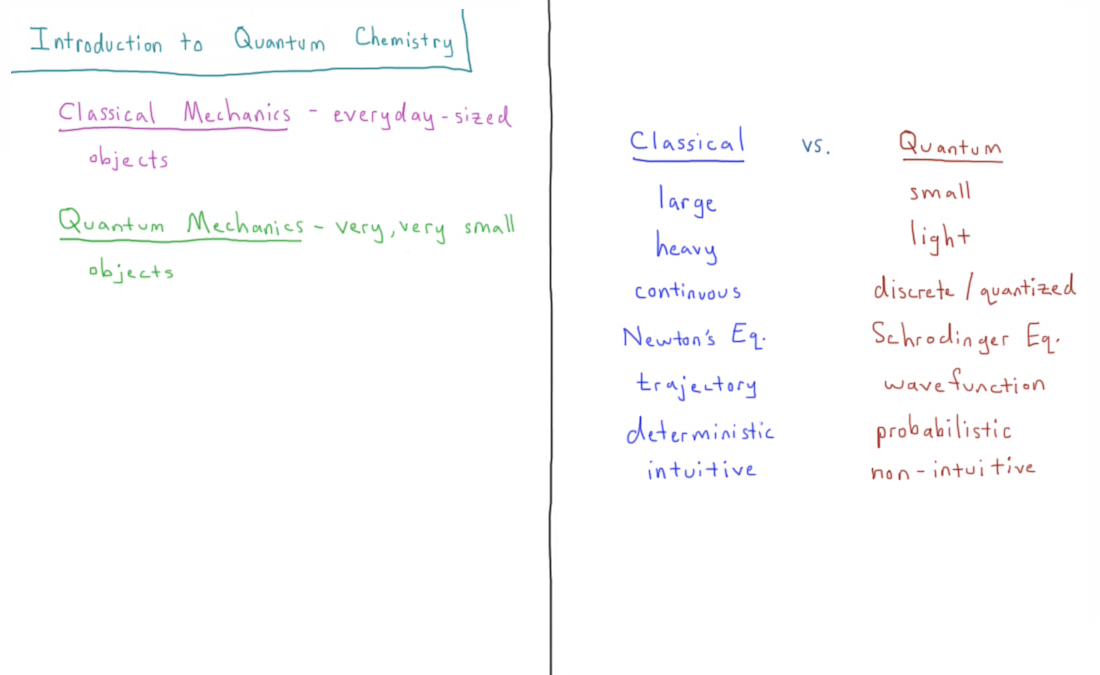 Introduction to Quantum Chemistry
Classical Mechanics - everyday-sized
objects
Quantum Mechanics - very, very small
objects
Classical vs. Quantum
large small
heavy light
continuous discrete / quantized
Newton's Eq. Schrodinger Eq.
trajectory wavefunction
deterministic probabilistic
intuitive non-intuitive